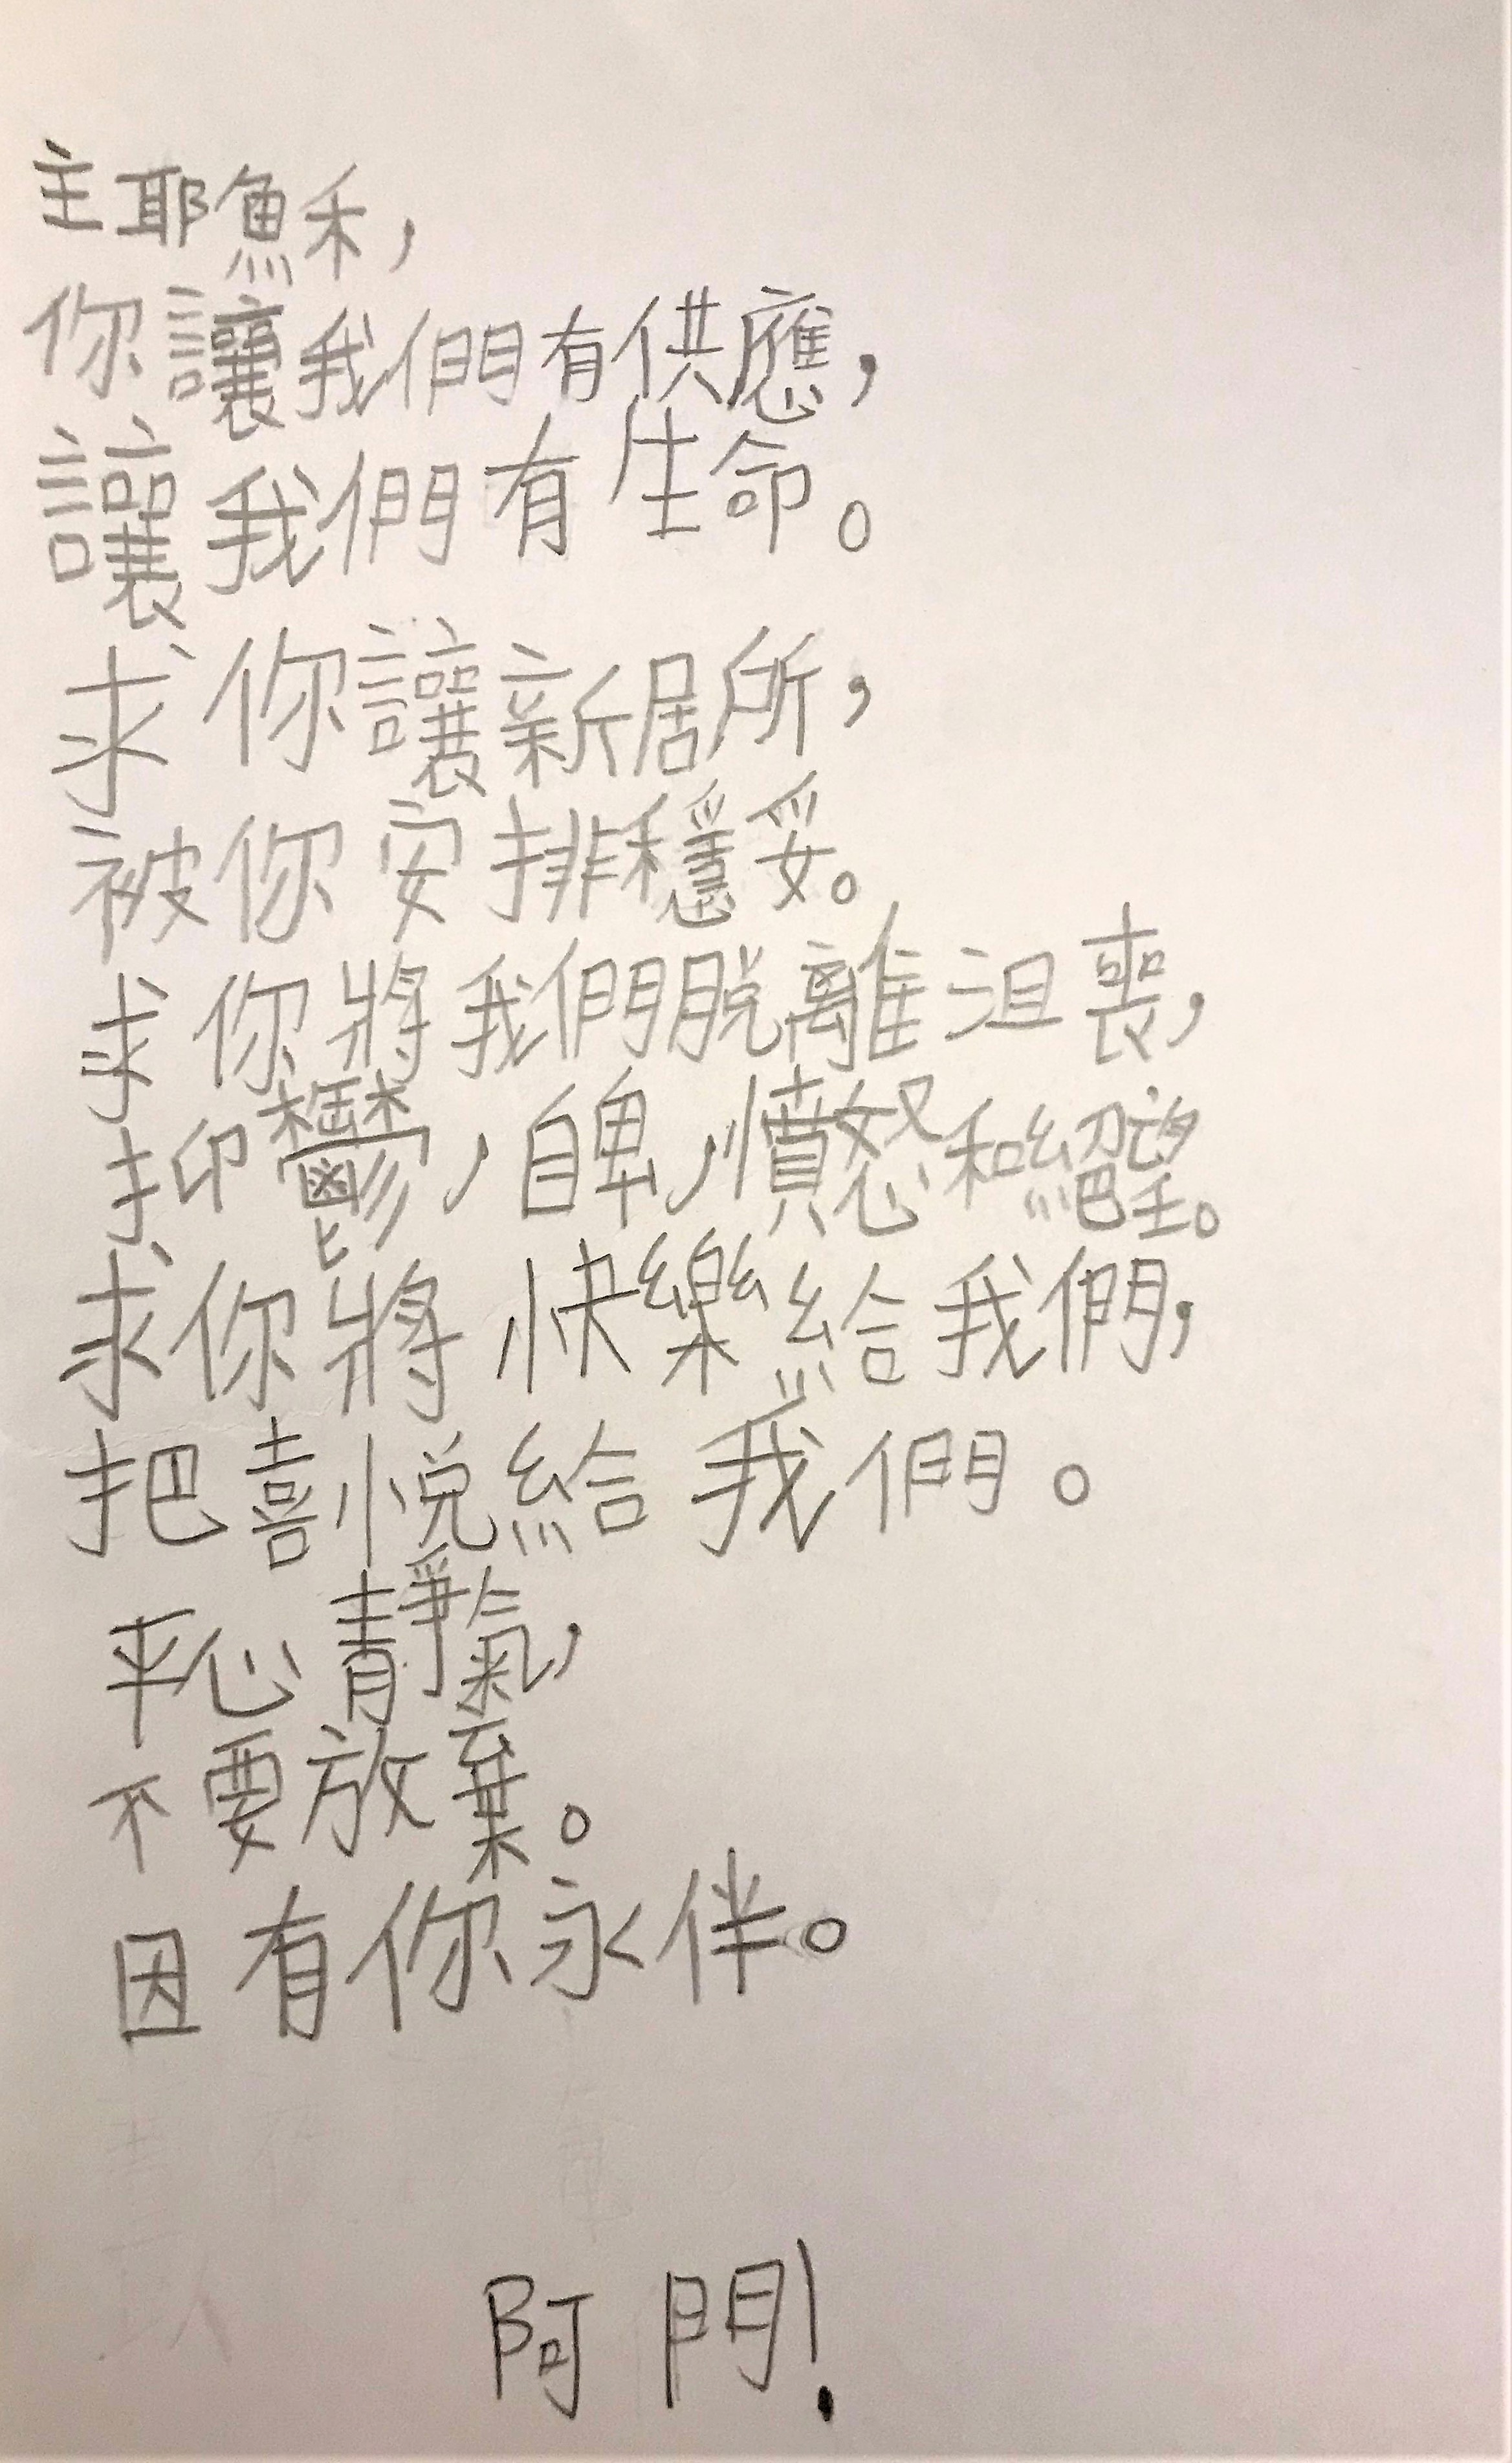 主耶穌，
你讓我們有供應，
讓我們有生命。
求你讓新居所，
被你安排穩妥。
求你將我們脫離沮喪，
抑鬱，自卑，憤怒和絕望。
求你將快樂給我們，
把喜悅給我們。
平心靜氣，
不要放棄。
因有你永伴。
阿門！